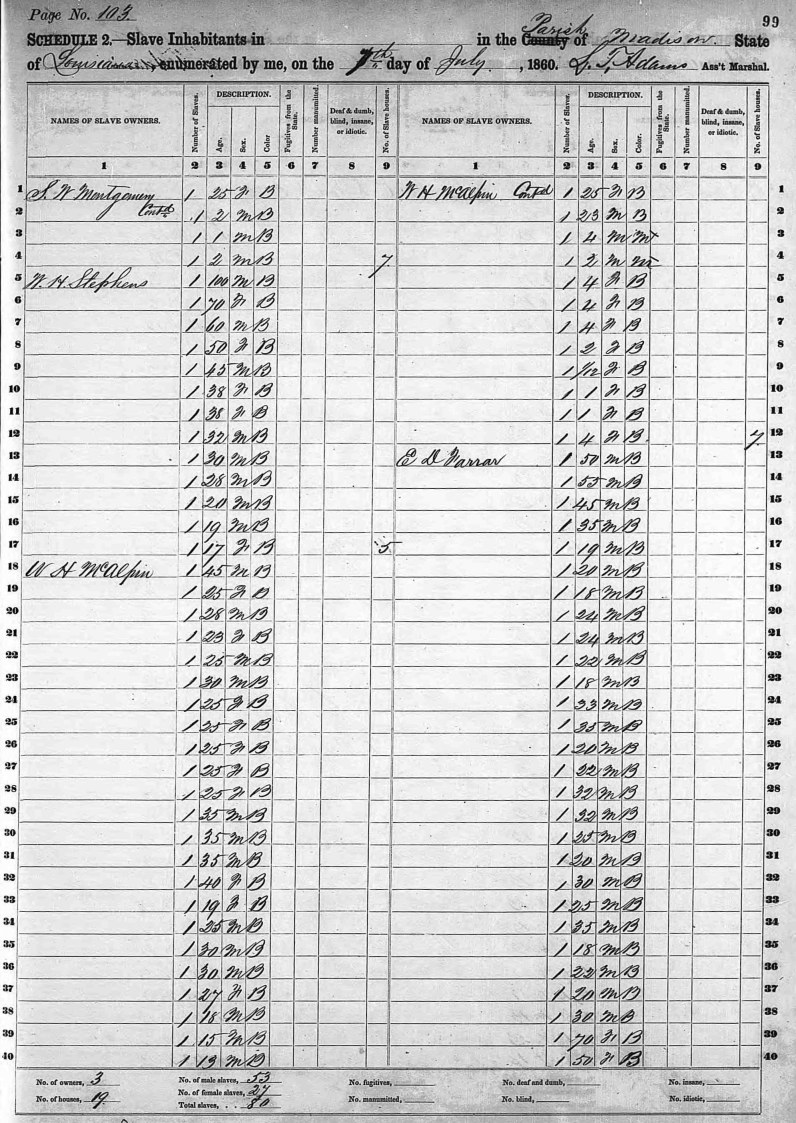 Page No. 103 99
SCHEDULE 2.—Slave Inhabitants in in the County Parish of Madison State
of Louisiana, enumerated by me, on the 7th day of July, 1860. S. T. Adams Ass't Marshal.
NAMES OF SLAVE OWNERS. Number of Slaves. DESCRIPTION. Age. Sex. Color. Fugitives from the State. Number manumitted. Deaf & dumb, blind, insane, or idiotic. No. of Slave houses. NAMES OF SLAVE OWNERS. Number of Slaves. DESCRIPTION. Age. Sex. Color. Fugitives from the State. Number manumitted. Deaf & dumb, blind, insane, or idiotic. No. of Slave houses.
1 2 3 4 5 6 7 8 9 1 2 3 4 5 6 7 8 9
1 S. W Montgomery 1 25 F B W H McAlpin Cont'd 1 25 F B 1
2 Cont'd 1 2 M B 1 23 M B 2
3 1 1 M B 1 4 M M 3
4 1 2 M B 7 1 2 M M 4
5 W. H. Stephens 1 100 M B 1 4 F B 5
6 1 70 F B 1 4 F B 6
7 1 60 M B 1 4 F B 7
8 1 50 F B 1 2 F B 8
9 1 45 M B 1 1/12 F B 9
10 1 38 F B 1 1 F B 10
11 1 38 F B 1 1 F B 11
12 1 32 M B 1 4 F B 7 12
13 1 30 M B E D Farrar 1 50 M B 13
14 1 28 M B 1 55 M B 14
15 1 20 M B 1 45 M B 15
16 1 19 M B 1 35 M B 16
17 1 17 F B 5 1 19 M B 17
18 W H McAlpin 1 45 M B 1 20 M B 18
19 1 25 F B 1 18 M B 19
20 1 28 M B 1 24 M B 20
21 1 23 F B 1 24 M B 21
22 1 25 M B 1 22 M B 22
23 1 30 M B 1 18 M B 23
24 1 25 F B 1 33 M B 24
25 1 25 F B 1 35 M B 25
26 1 25 F B 1 20 M B 26
27 1 25 F B 1 22 M B 27
28 1 25 F B 1 32 M B 28
29 1 35 M B 1 32 M B 29
30 1 35 M B 1 25 M B 30
31 1 35 M B 1 20 M B 31
32 1 40 F B 1 30 M B 32
33 1 19 F B 1 25 M B 33
34 1 25 M B 1 35 M B 34
35 1 30 M B 1 18 M B 35
36 1 30 M B 1 22 M B 36
37 1 27 F B 1 20 M B 37
38 1 18 M B 1 30 M B 38
39 1 15 M B 1 70 F B 39
40 1 13 M B 1 50 F B 40
No. of owners, 3 No. of male slaves, 53 No. fugitives, No. deaf and dumb, No. insane,
No. of houses, 19 No. of female slaves, 27 No. manumitted, No. blind, No. idiotic,
Total slaves, 80